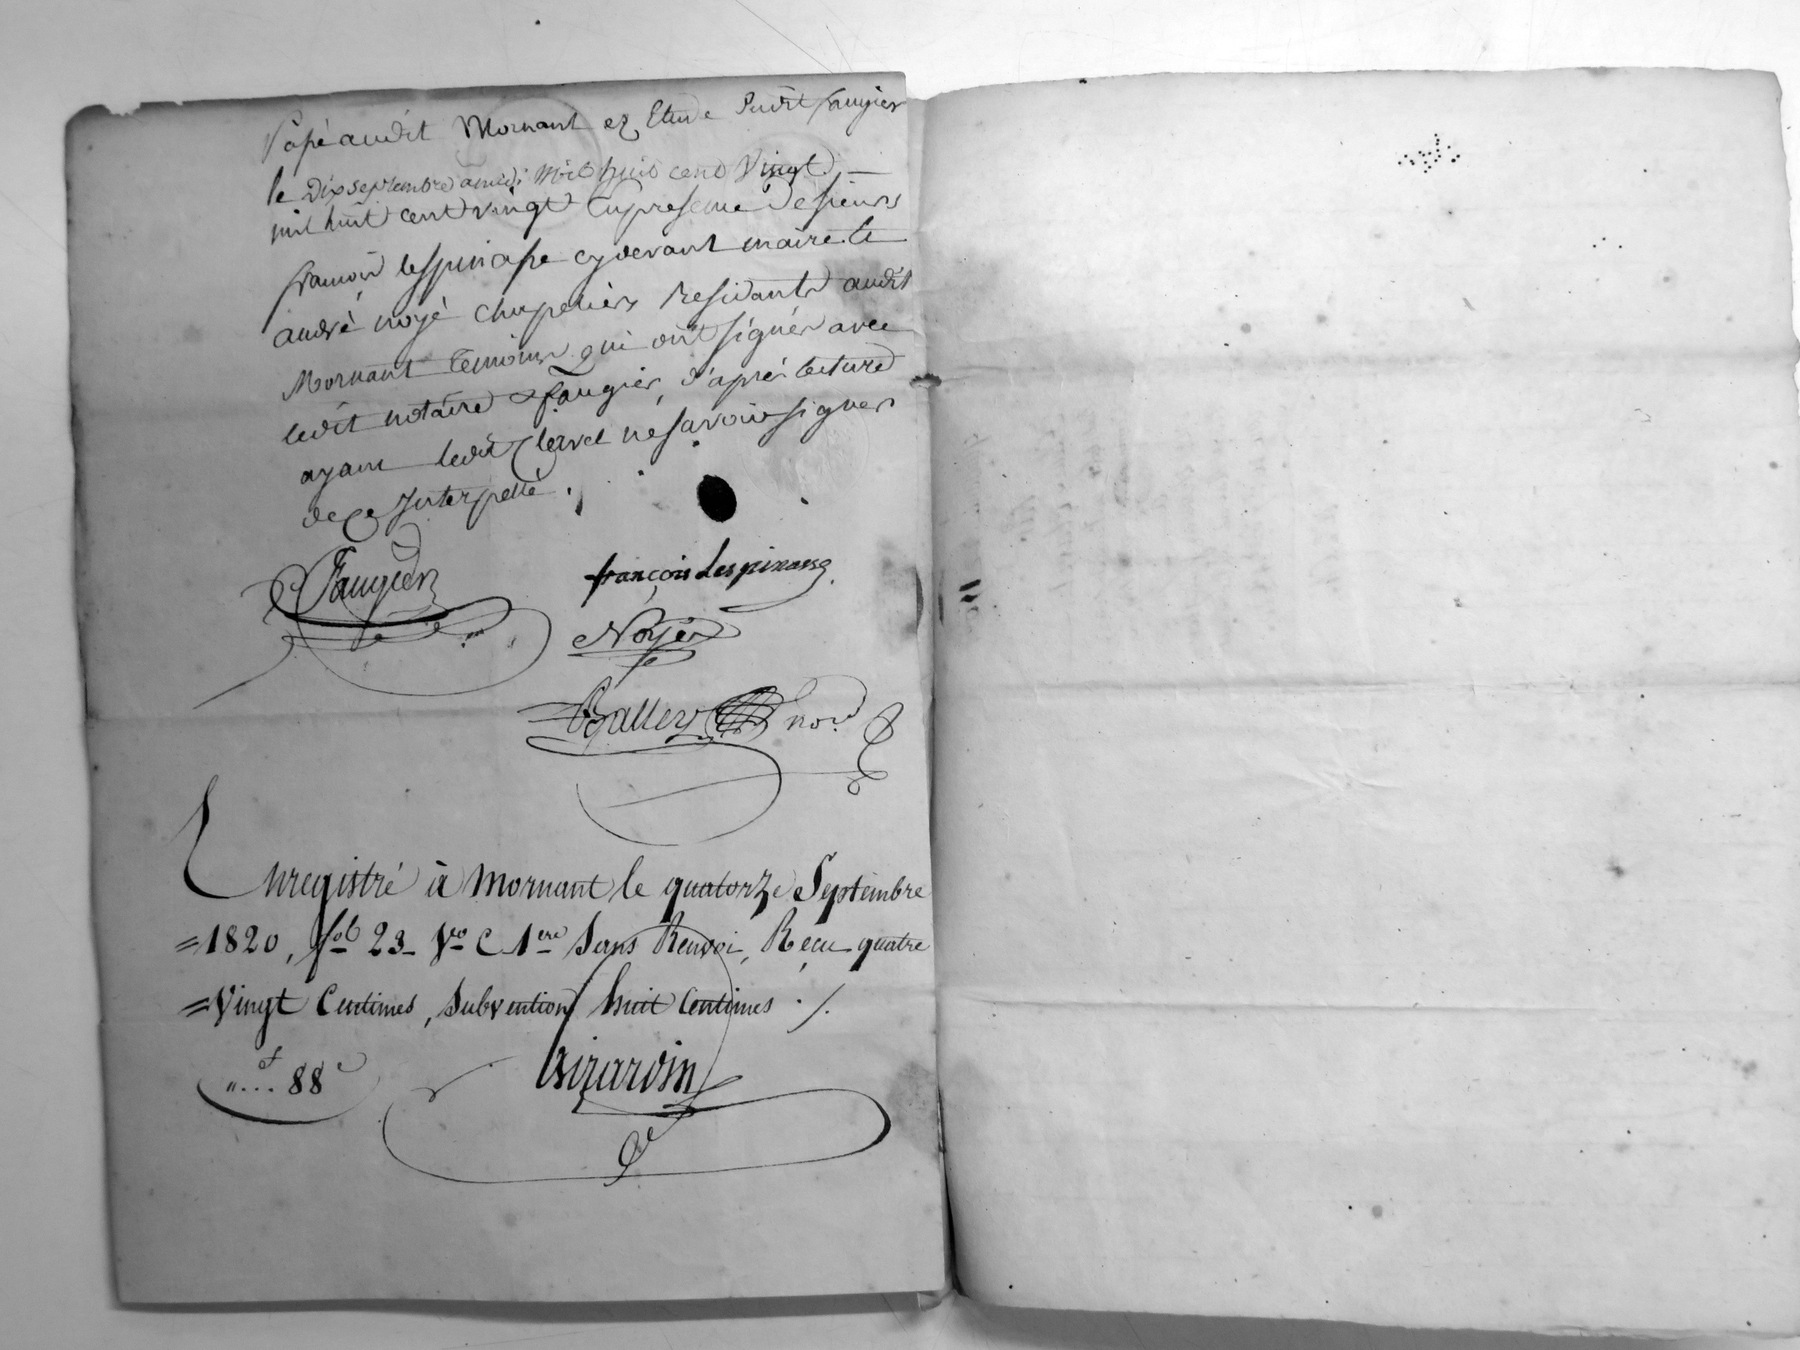 Passé audit Mornant ez Etude dudit faugier
le Dix septembre amidi mil huit cent Vingt
mil huit cent vingt En presence de sieurs
francois lespinasse cydevant maire et
andré noyé chapeliers Residants audit
Mornant temoins qui ont signés avec
ledit notaire & faugier, d'aprés lecture
ayant ledit Clavel ne savoir signer
de ce Interpellé.
Faugier
françois Lespinasse
Noyer
nore
Enregistré à Mornant le quatorze Septembre
=1820, fol 23 Vro C 1ere Sans Renvoi, Reçu quatre
=Vingt Centimes, Subvention huit Centimes ./.
"... f 88 c
Girardin